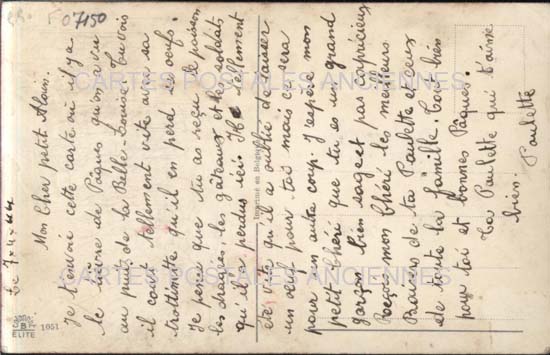 07150
Le 7-4-44
Mon Cher petit Alain.
Je t'envoi cette carte où il y a
le lièvre de Pâques qu'on a vu
au puits de la Belle-Louise. Tu vois
il court tellement vite avec sa
trottinette qu'il en perd ses oeufs.
Je pense que tu as reçu le poisson
les dragées, les gâteaux et les soldats
qu'il a perdus ici. Il a tellement
été vite qu'il a oublié de laisser
un oeuf pour toi mais ce sera
pour un autre coup. J'espère mon
petit chéri que tu es un grand
garçon bien sage et pas capricieux
Reçois mon chéri les meilleurs
Baisers de ta Paulette et ceux
de toute la famille. Tous bien
pour toi et bonnes Pâques.
Ta Paulette qui t'aime
bien.
Paulette
Imprimé en Belgique
ELITE
1051
CARTES POSTALES ANCIENNES
CARTES POSTALES ANCIENNES